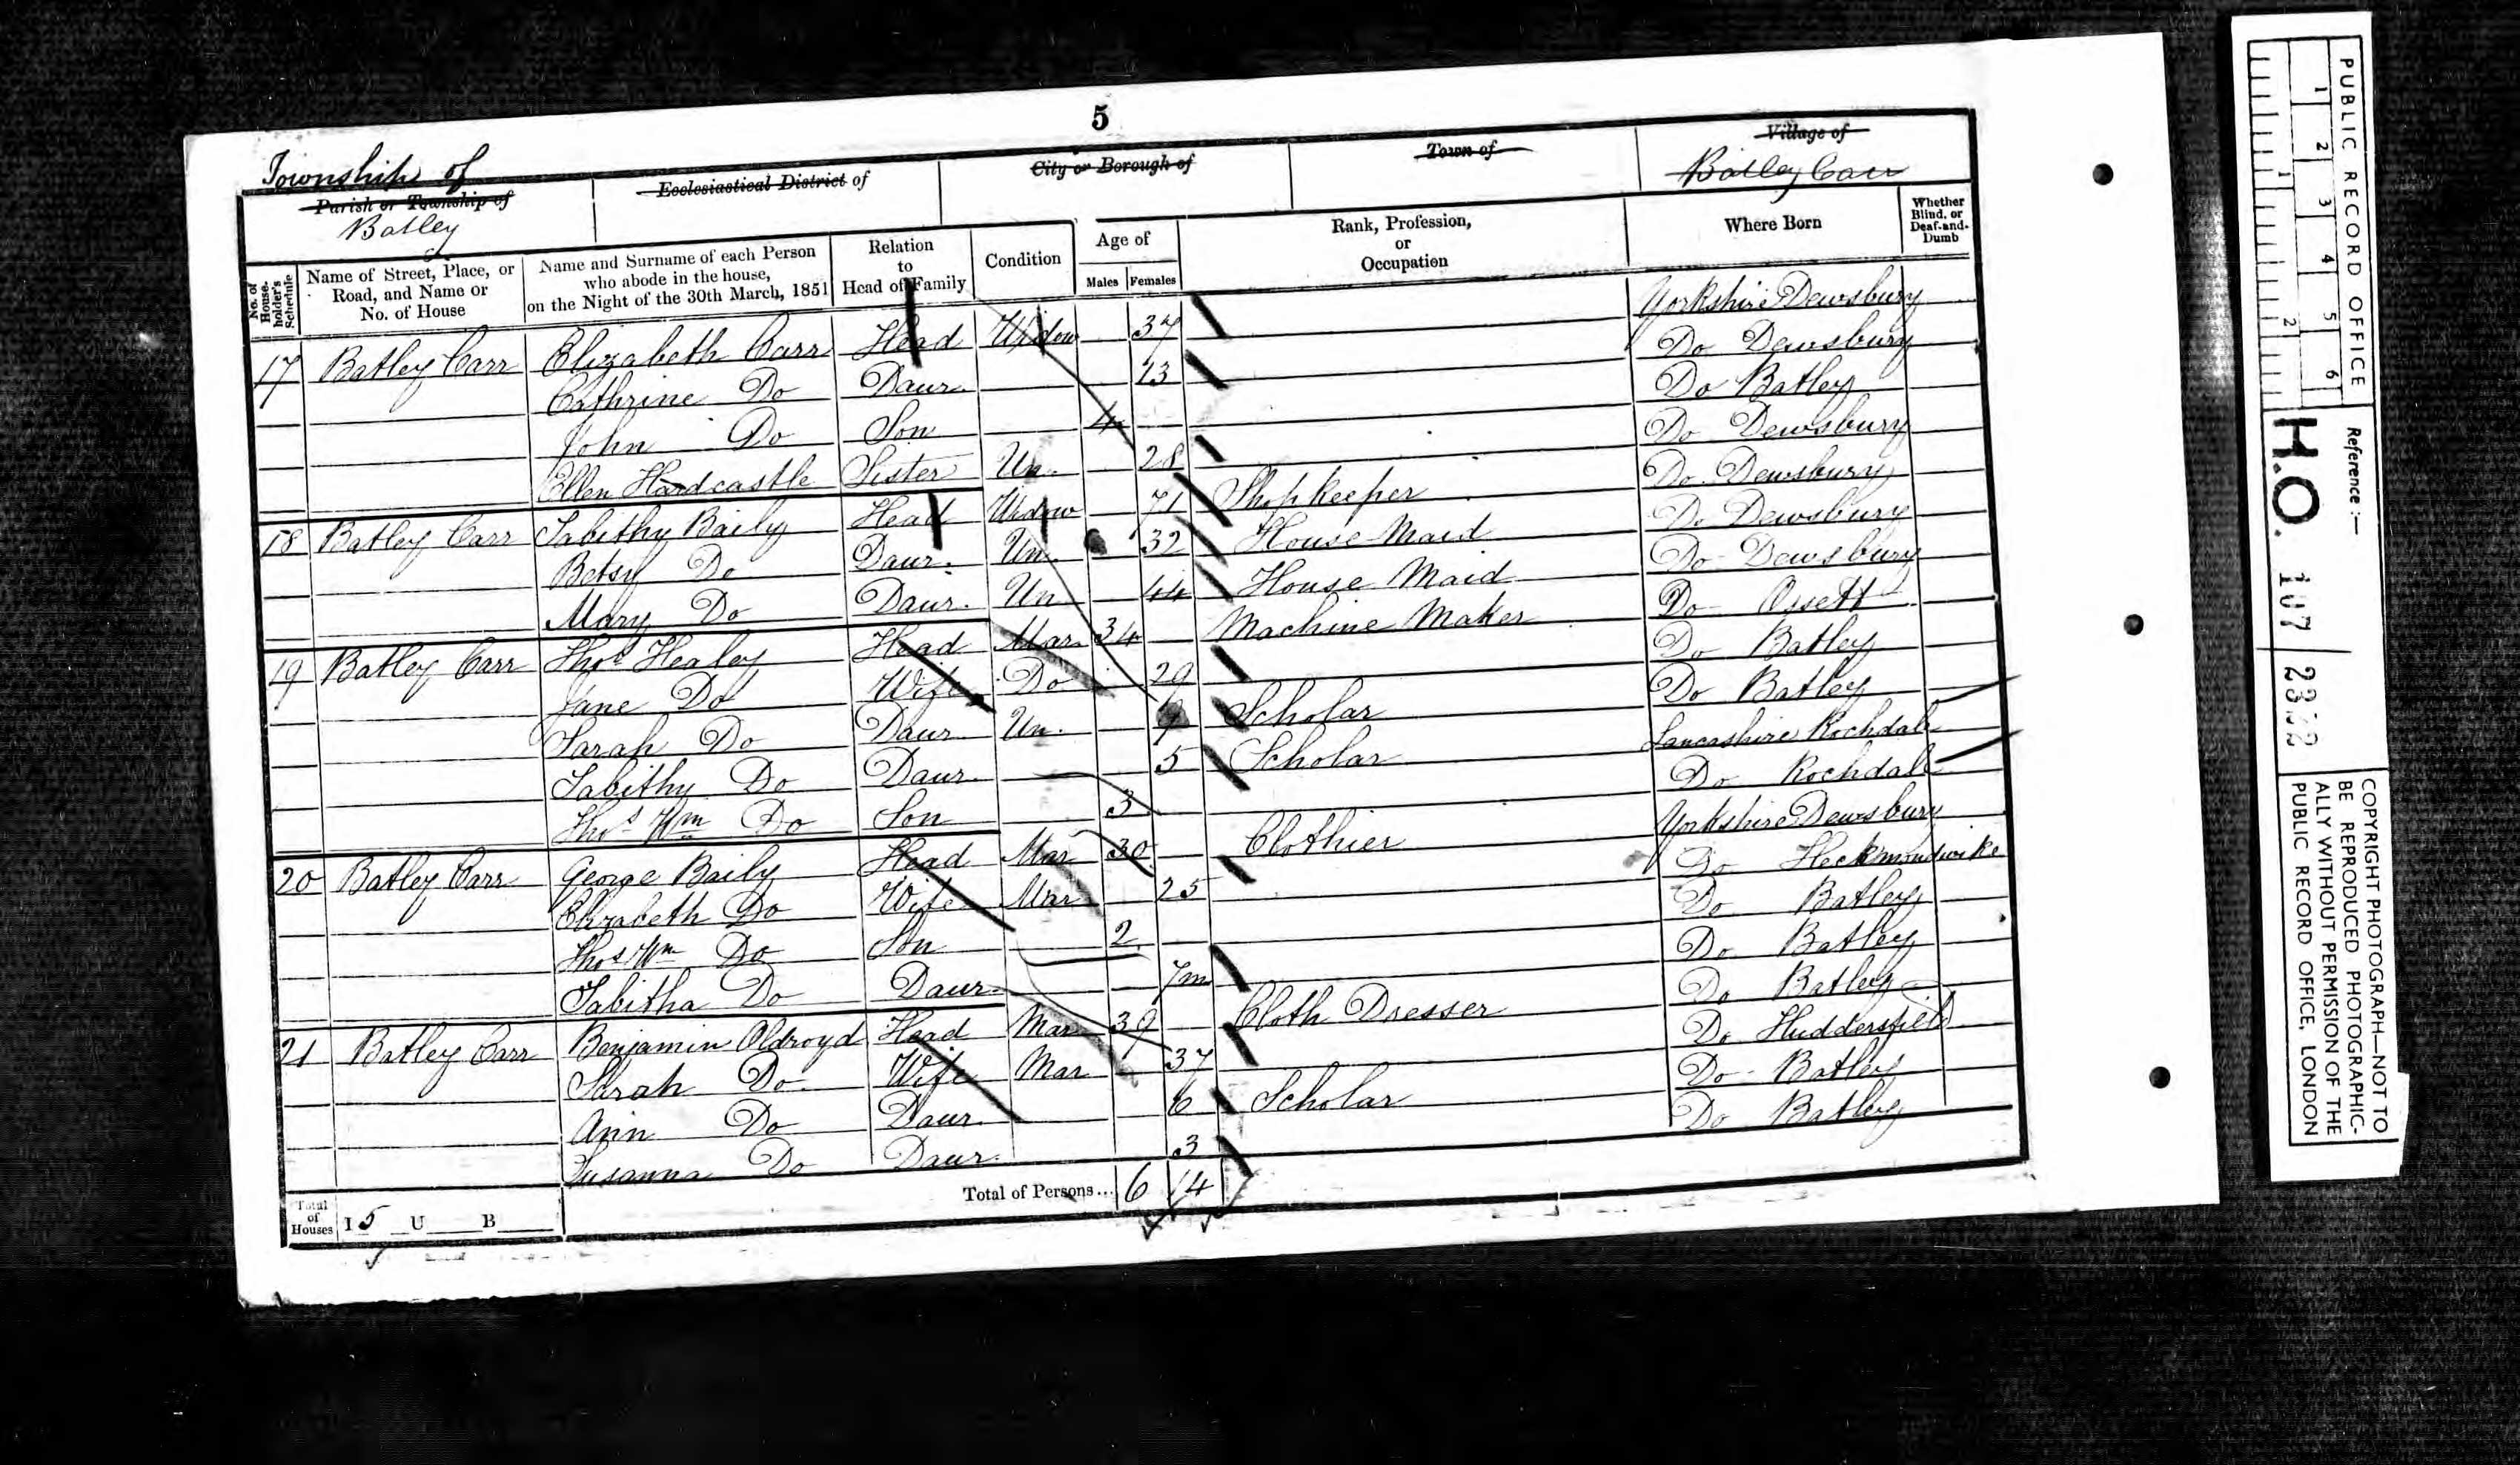 5
Township of
Parish or Township of
Batley
Ecclesiastical District of
City or Borough of
Town of
Village of
Batley Carr
No. of House-holder's Schedule
Name of Street, Place, or Road, and Name or No. of House
Name and Surname of each Person who abode in the house, on the Night of the 30th March, 1851
Relation to Head of Family
Condition
Age of
Males Females
Rank, Profession, or Occupation
Where Born
Whether Blind, or Deaf-and-Dumb
17 Batley Carr Elizabeth Carr Head Widow 37 Yorkshire Dewsbury
Cathrine Do Daur. 13 Do Dewsbury
John Do Son 4 Do Batley
Ellen Hardcastle Sister Un. 28 Do Dewsbury
18 Batley Carr Tabithy Baily Head Widow 71 Shopkeeper Do. Dewsbury
Betsy Do Daur. Un. 32 House Maid Do Dewsbury
Mary Do Daur. Un 44 House Maid Do Dewsbury
19 Batley Carr Thos Healey Head Mar. 34 Machine Maker Do Ossett
Jane Do Wife Do 29 Do Batley
Sarah Do Daur. Un. 9 Scholar Do Batley
Tabithy Do Daur. 5 Scholar Lancashire Rochdale
Thos Wm Do Son 3 Do Rochdale
20 Batley Carr George Baily Head Mar 30 Clothier Yorkshire Dewsbury
Elizabeth Do Wife Mar 25 Do Heckmondwike
Thos Wm Do Son 2 Do Batley
Tabitha Do Daur. 7m Do Batley
21 Batley Carr Benjamin Oldroyd Head Mar 39 Cloth Dresser Do Batley
Sarah Do. Wife Mar 37 Do Huddersfield
Ann Do Daur. 6 Scholar Do Batley
Susanna Do Daur. 3 Do Batley
Total of Houses I 5 U B Total of Persons... 6 14
PUBLIC RECORD OFFICE
1 2 3 4 5 6
1 2
Reference :-
H.O. 107
COPYRIGHT PHOTOGRAPH—NOT TO
BE REPRODUCED PHOTOGRAPHIC-
ALLY WITHOUT PERMISSION OF THE
PUBLIC RECORD OFFICE, LONDON